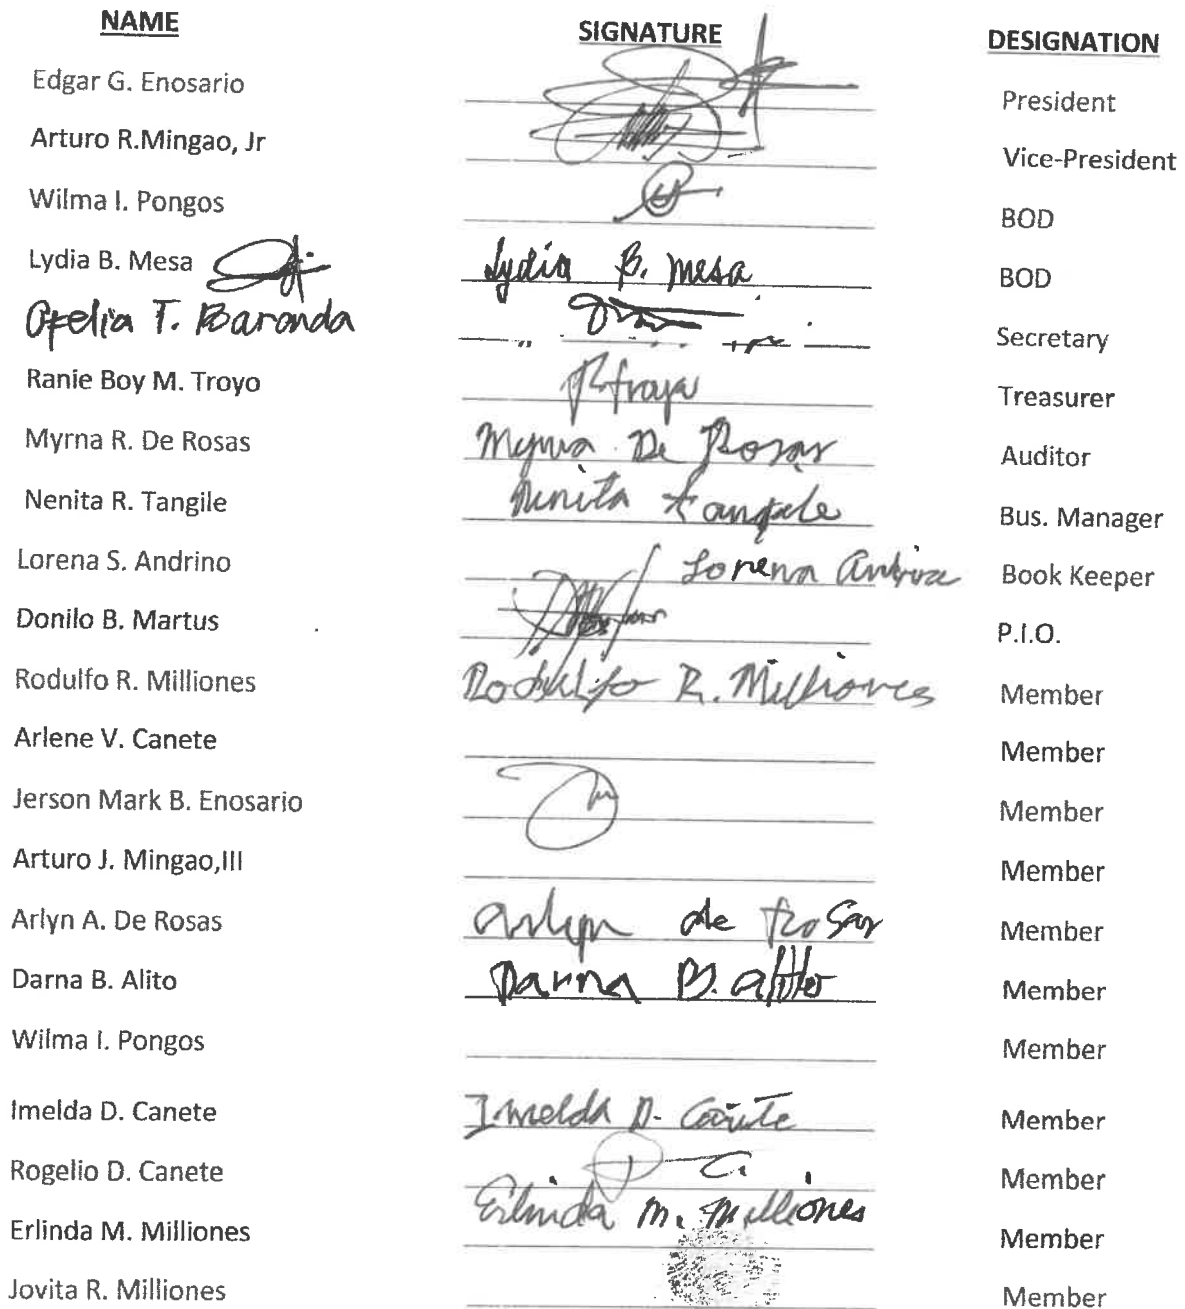 NAME SIGNATURE DESIGNATION
Edgar G. Enosario President
Arturo R.Mingao, Jr Vice-President
Wilma I. Pongos BOD
Lydia B. Mesa Lydia B. Mesa BOD
Ofelia T. Baronda Secretary
Ranie Boy M. Troyo Treasurer
Myrna R. De Rosas Myrna De Rosas Auditor
Nenita R. Tangile Nenita Tangile Bus. Manager
Lorena S. Andrino Lorena Book Keeper
Donilo B. Martus P.I.O.
Rodulfo R. Milliones Rodulfo R. Milliones Member
Arlene V. Canete Member
Jerson Mark B. Enosario Member
Arturo J. Mingao,III Member
Arlyn A. De Rosas Arlyn de Rosas Member
Darna B. Alito Darna B. Alito Member
Wilma I. Pongos Member
Imelda D. Canete Imelda D. Cañete Member
Rogelio D. Canete Member
Erlinda M. Milliones Erlinda M. Milliones Member
Jovita R. Milliones Member